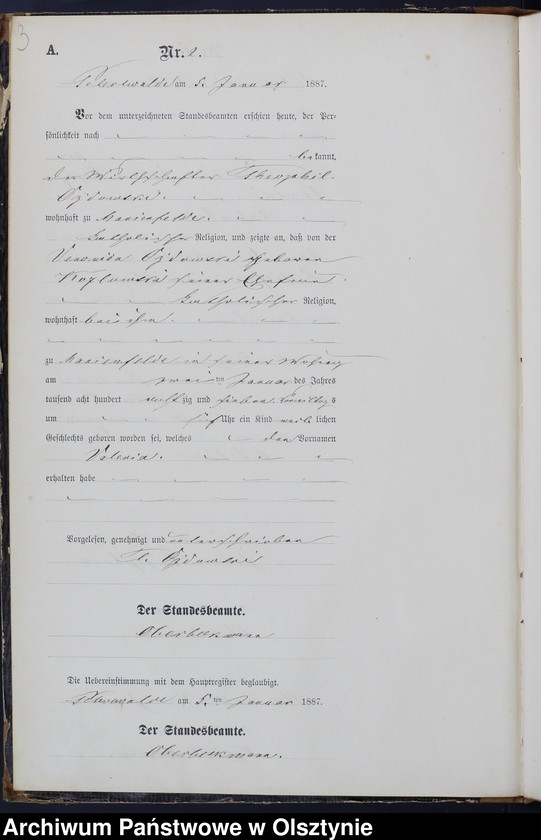 3
A. Nr. 2.
am 5. Januar 1887.
Vor dem unterzeichneten Standesbeamten erschien heute, der Per-
sönlichkeit nach
bekannt,
der Wirthschafter Theophil
wohnhaft zu Marienfelde.
katholischer Religion, und zeigte an, daß von der
Veronika geborenen
Kozlowski seiner Ehefrau
katholischer Religion,
wohnhaft bei ihm.
zu Marienfelde in seiner Wohnung
am zwei ten Januar des Jahres
tausend acht hundert achtzig und sieben
um Uhr ein Kind weiblichen
Geschlechts geboren worden sei, welches den Vornamen
Valeria.
erhalten habe
Vorgelesen, genehmigt und unterschrieben
T.
Der Standesbeamte.
Die Uebereinstimmung mit dem Hauptregister beglaubigt.
am 5. ten Januar 1887.
Der Standesbeamte.
Archiwum Państwowe w Olsztynie